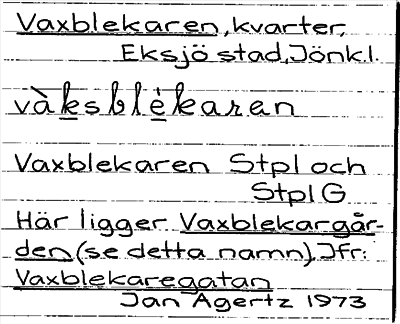 Vaxblekaren, kvarter,
Eksjö stad, Jönk.l.
vàksblèkaran
Vaxblekaren Stpl och
Stpl G
Här ligger Vaxblekargår-
den (se detta namn). Jfr:
Vaxblekaregatan
Jan Agertz 1973